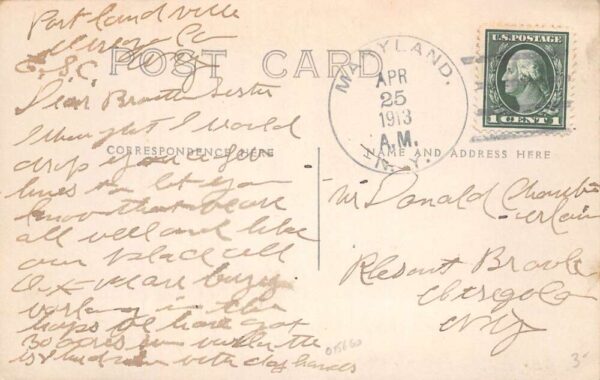 Portlandville
Otsego Co
E.S.C. N.Y.
POST CARD
Dear Brother Sister
I thought I would
drop you a few
lines to let you
know that we are
all well and like
our place all
O.K. We are busy
working in the
hops we have got
30 acres
with day hands
CORRESPONDENCE HERE
MARYLAND.
APR
25
1913
A.M.
N.Y.
U.S. POSTAGE
1 CENT 1
NAME AND ADDRESS HERE
Mr Donald Chamb-
erlain
Plesant Brook
Otsego Co
N.Y.